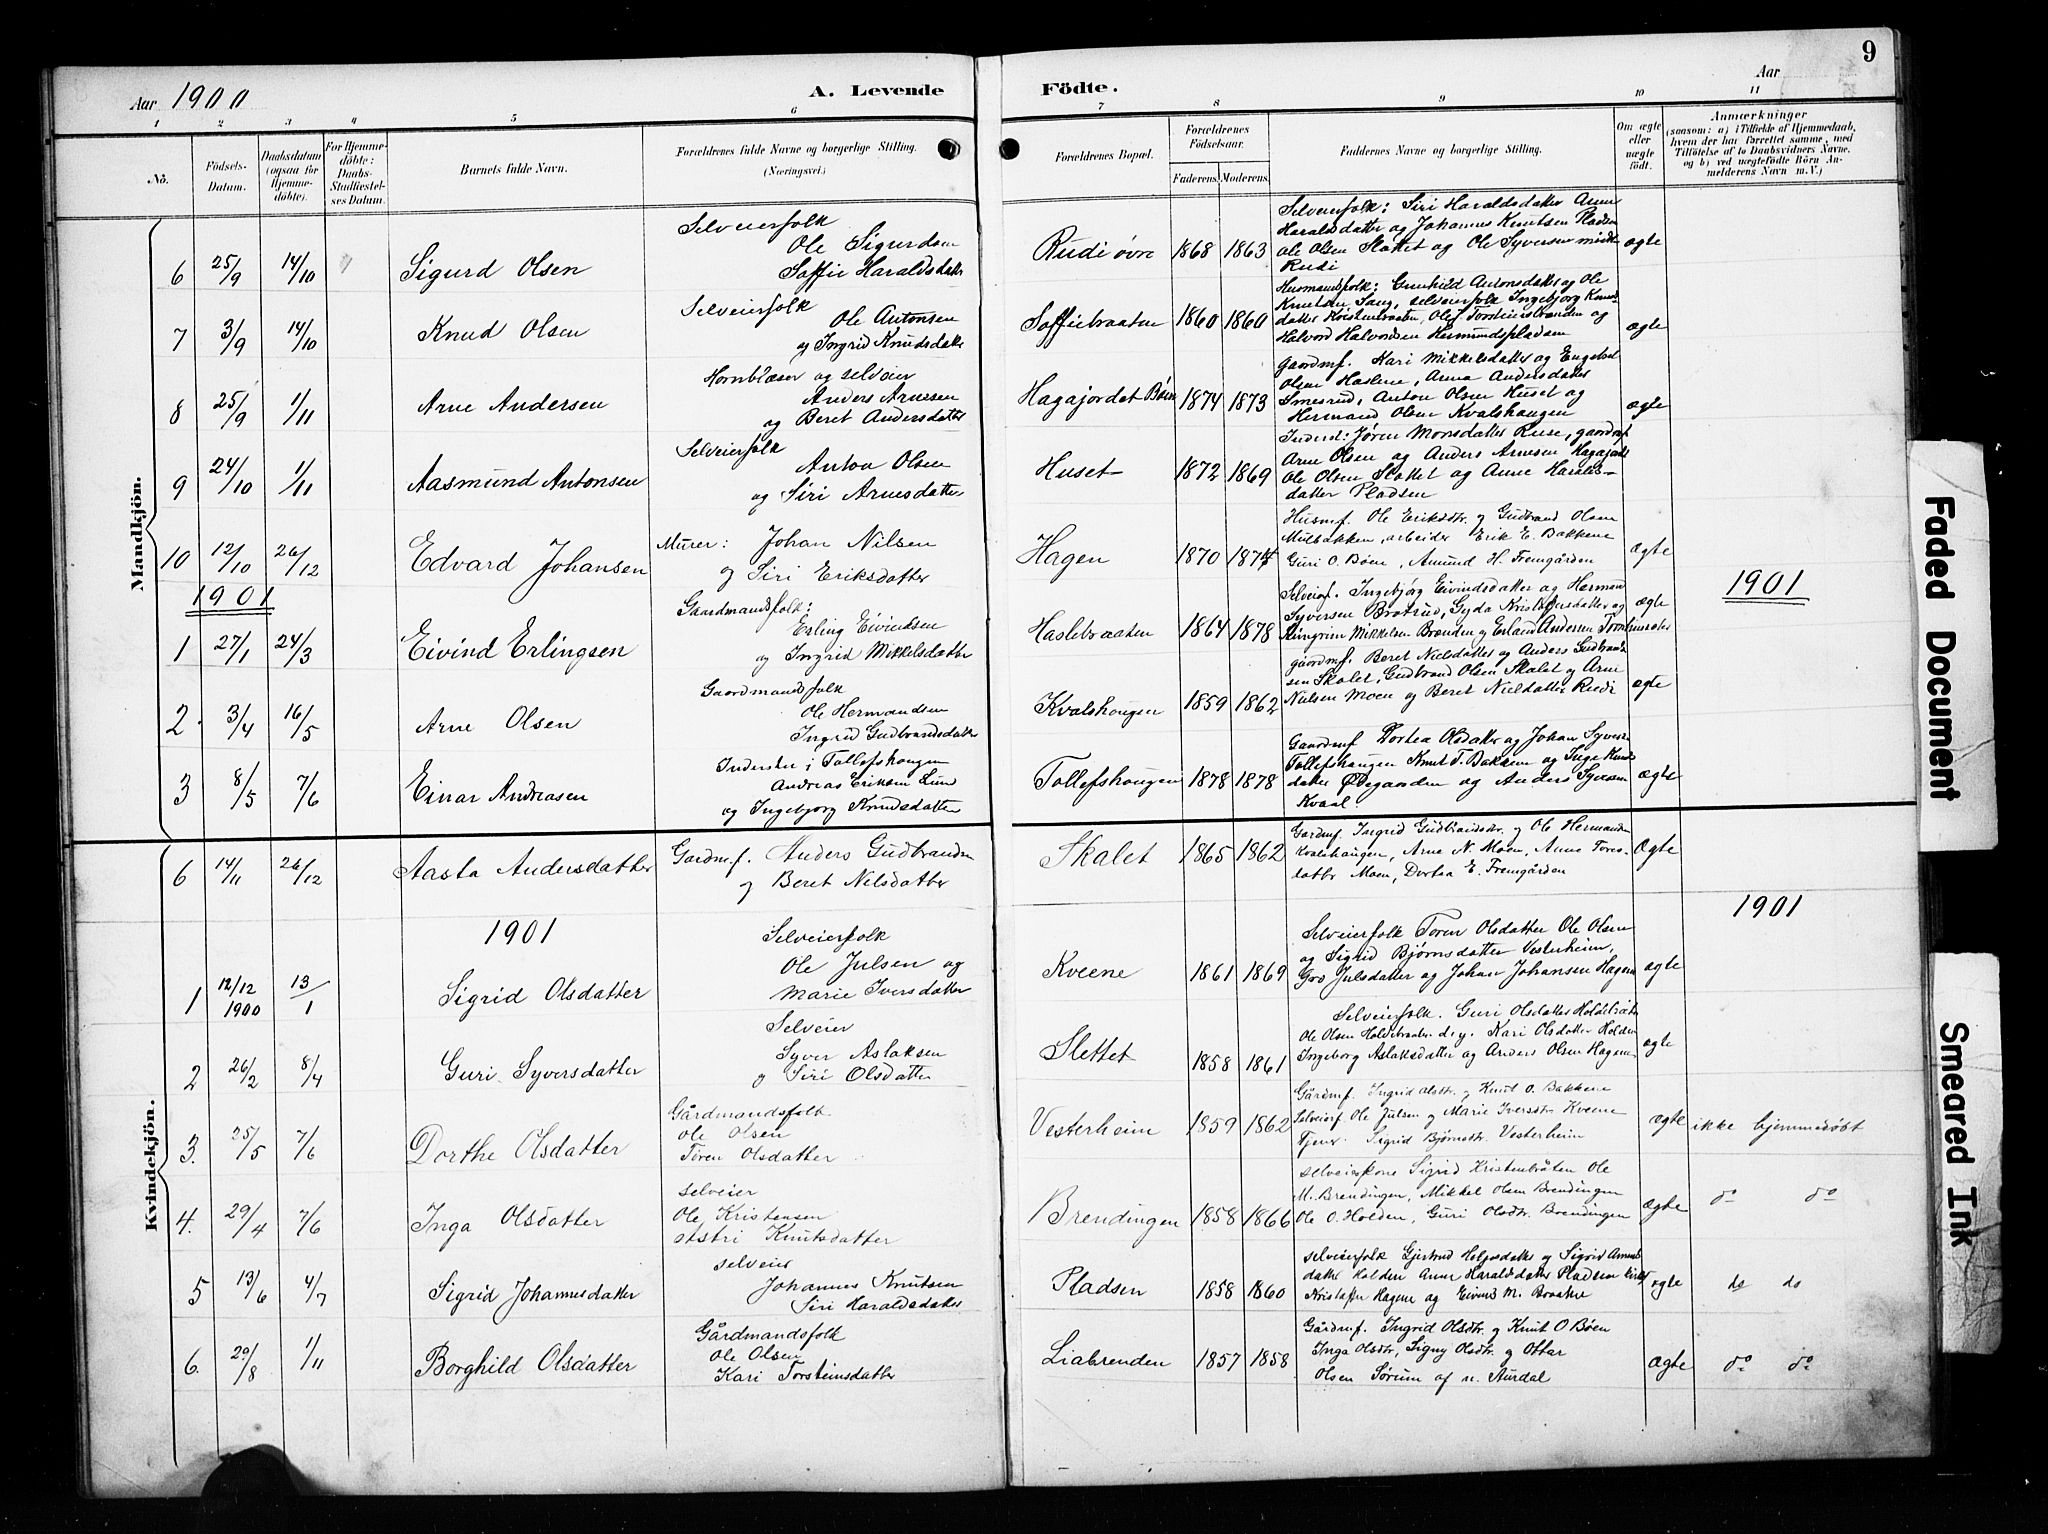 9
Aar 1900
A. Levende
Födte.
Aar
1 2 3 4 5 6 7 8 9 10 11
No.
Födsels-Datum.
Daabsdatum (ogsaa for Hjemme-döbte).
For Hjemme-döbte: Daabs-Stadfæstel-ses Datum.
Barnets fulde Navn.
Forældrenes fulde Navne og borgerlige Stilling. (Næringsvei.)
Forældrenes Bopæl.
Forældrenes Födselsaar.
Faderens. Moderens.
Faddernes Navne og borgerlige Stilling.
Om ægte eller uægte födt.
Anmærkninger
(saasom: a) i Tilfælde af Hjemmedaab, hvem der har forrettet samme, med Tilföielse af to Daabsvidners Navne, og b) ved uægtefödte Börn An-melderens Navn m. V.)
Mandkjön.
6 25/9 14/10 Sigurd Olsen
Selveierfolk
Ole Sigurdsen
Soffie Haraldsdatter
Rudi øvre 1868 1863
Selveierfolk: Siri Haraldsdatter Anne
Haraldsdatter og Johannes Knutsen Pladsen
Ole Olsen Slottet og Ole Syversen
Rudi
ægte
7 3/9 14/10 Knud Olsen
Selveierfolk
Ole Antonsen
og Ingrid Knudsdatter
Soffiebraaten 1860 1860
Husmandsfolk: Gunhild Antonsdatter og Ole
Knutsen Haug, selveierfolk Ingebjorg Knuds-
datter Kristenbraaten, Ole Torsteinsbraaden og
Halvord Halvordsen Hermundspladsen
ægte
8 25/9 1/11 Arne Andersen
Hornblæser og selveier
Anders Arnesen
og Beret Andersdatter
Hagajordet Bøen 1874 1873
Gaardmf. Kari Mikkelsdatter og Engebret
Olsen Haslene, Anna Andersdatter
Smesrud, Anton Olsen Huset og
Hermand Olsen Kvalshaugen
ægte
9 24/10 1/11 Aasmund Antonsen
Selveierfolk
Anton Olsen
og Siri Arnesdatter
Huset 1872 1869
Inderst: Jøren Monsdatter Ruse, gaardmf
Arne Olsen og Anders Arnesen Hagajordet
Ole Olsen Slottet og Anne Haralds-
datter Pladsen
10 12/10 26/12 Edvard Johansen
Murer: Johan Nilsen
og Siri Eriksdatter
Hagen 1870 1874
Husmf. Ole Eriksdtr. og Gudbrand Olsen
Milbakken, arbeider Erik E. Bakkene
Guri O. Bøen, Amund H. Fremgården
ægte
1901
1901
1 27/1 24/3 Eivind Erlingsen
Gaardmandsfolk:
Erling Eivindsen
og Ingrid Mikkelsdatter
Haslebraaten 1864 1878
Selveierf. Ingebjørg Eivindsdatter og Herman
Syversen Brotrud, Gyda Kristofersdatter og
Hingrim Mikkelsen Brænden og Erland Andersen
ægte
2. 3/4 16/5 Arne Olsen
Gaardmandsfolk
Ole Hermandsen
Ingrid Gudbrandsdatter
Kvalshaugen 1859 1862
gaardmf. Beret Nielsdatter og Anders Gudbrand-
sen Skalet, Gudbrand Olsen Skalet og Arne
Nielsen Moen og Beret Nielsdatter Rudi
ægte
3 8/5 7/6 Einar Andreasen
Inderster i Tollefshaugen
Andreas Eriksen Lund
og Ingebjorg Knudsdatter
Tollefshaugen 1878 1878
Gaardmf. Dortea Olsdatter og Johan Syvers.
Tollefshaugen Knut T. Bakken og Inge Knuds-
datter Ødegaarden og Anders Syversen
Kvaal.
ægte
Kvindekjön.
6 14/11 26/12 Aasta Andersdatter
Gardm.f. Anders Gudbrandsen
og Beret Nilsdatter
Skalet 1865 1862
Gardmf. Ingrid Gudbrandsdtr. og Ole Hermandsen
Kvalshaugen, Arne N. Moen, Anne Tores-
datter Moen, Dortea E. Fremgården
Ægte
1901
1901
1 12/12 1900 13/1 Sigrid Olsdatter
Selveierfolk
Ole Julsen og
Marie Iversdatter
Kveene 1861 1869
Selveierfolk Toren Olsdatter Ole Olsen
og Sigrid Bjørnsdatter Vesterheim,
Gro Julsdatter og Johan Johansen Hagen
ægte
2 26/2 8/4 Guri Syversdatter
Selveier
Syver Aslaksen
og Siri Olsdatter
Slettet 1858 1861
Selveierfolk. Guri Olsdatter
Ole Olsen Kari Olsdatter Holden
Ingeborg Aslaksdatter og Anders Olsen Hagen
ægte
3. 25/5 7/6 Dorthe Olsdatter
Gårdmandsfolk
Ole Olsen
Toren Olsdatter
Vesterheim 1859 1862
Gårdmf. Ingrid Olsdtr. og Knut O. Bakkene
Selveierf Ole Julsen og Marie Iversdtr Kveene
Tjener. Sigrid Bjørnsdtr. Vesterheim
Ægte ikke hjemmedøbt
4. 29/4 7/6 Inga Olsdatter
selveier
Ole Kristensen
Astri Knutsdatter
Brendingen 1858 1866
selveierkone Sigrid Kristenbråten Ole
M. Brendingen, Mikkel Olsen Brendingen
Ole O. Holden, Guri Olsdtr. Brendingen
Ægte do do
5 13/6 4/7 Sigrid Johannesdatter
selveier
Johannes Knutsen
Siri Haraldsdatter
Pladsen 1858 1860
selveierfolk Gjertrud Helgesdatter og Sigrid
datter Holden Anne Haraldsdatter Pladsen
Kristoffer Hagene og Eivind M. Braaten
ægte do do
6. 29/8 1/11 Borghild Olsdatter
Gårdmandsfolk
Ole Olsen
Kari Torsteinsdatter
Liabrenden 1857 1858
Gårdmf. Ingrid Olsdtr. og Knut O Bøen
Inga Olsdtr, Signy Olsdtr. og Ottar
Olsen Sørum af n. Aurdal
Ægte do do
Faded Document
Smeared Ink